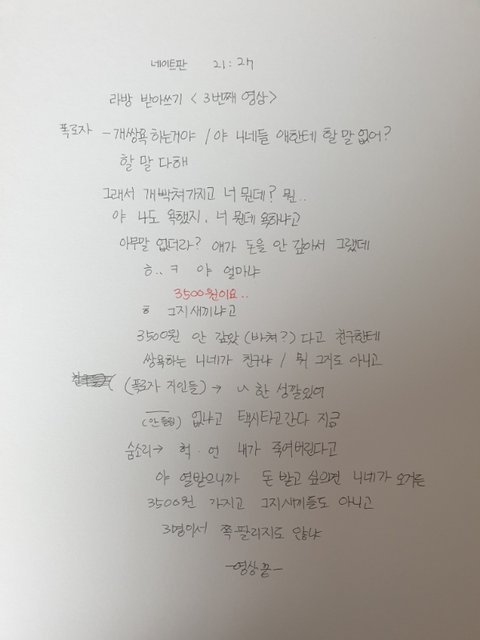 네이트판 21:27
라방 받아쓰기 < 3번째 영상>
폭로자 - 개쌍욕 하는거야 / 야 니네들 얘한테 할 말 없어?
할 말 다해
그래서 개빡쳐가지고 너 뭔데? 뭔..
야 나도 욕했지, 너 뭔데 욕하냐고
아무말 없더라? 얘가 돈을 안 갚아서 그랬데
ㅎ.. ㅋ 야 얼마냐
3500원이요..
ㅎ 그지새끼냐고
3500원 안 갚았 (바쳐?) 다고 친구한테
쌍욕하는 니네가 친구냐 / 뭐 그지도 아니고
(폭로자 지인들) → ㄴ 한 성깔있어
(안들림) 없냐고 택시타고 간다 지금
숨소리→ 헉. 언 내가 죽여버린다고
야 열받으니까 돈 받고 싶으면 니네가 오거든
3500원 가지고 그지새끼들도 아니고
3명이서 쪽팔리지도 않냐
-영상 끝-